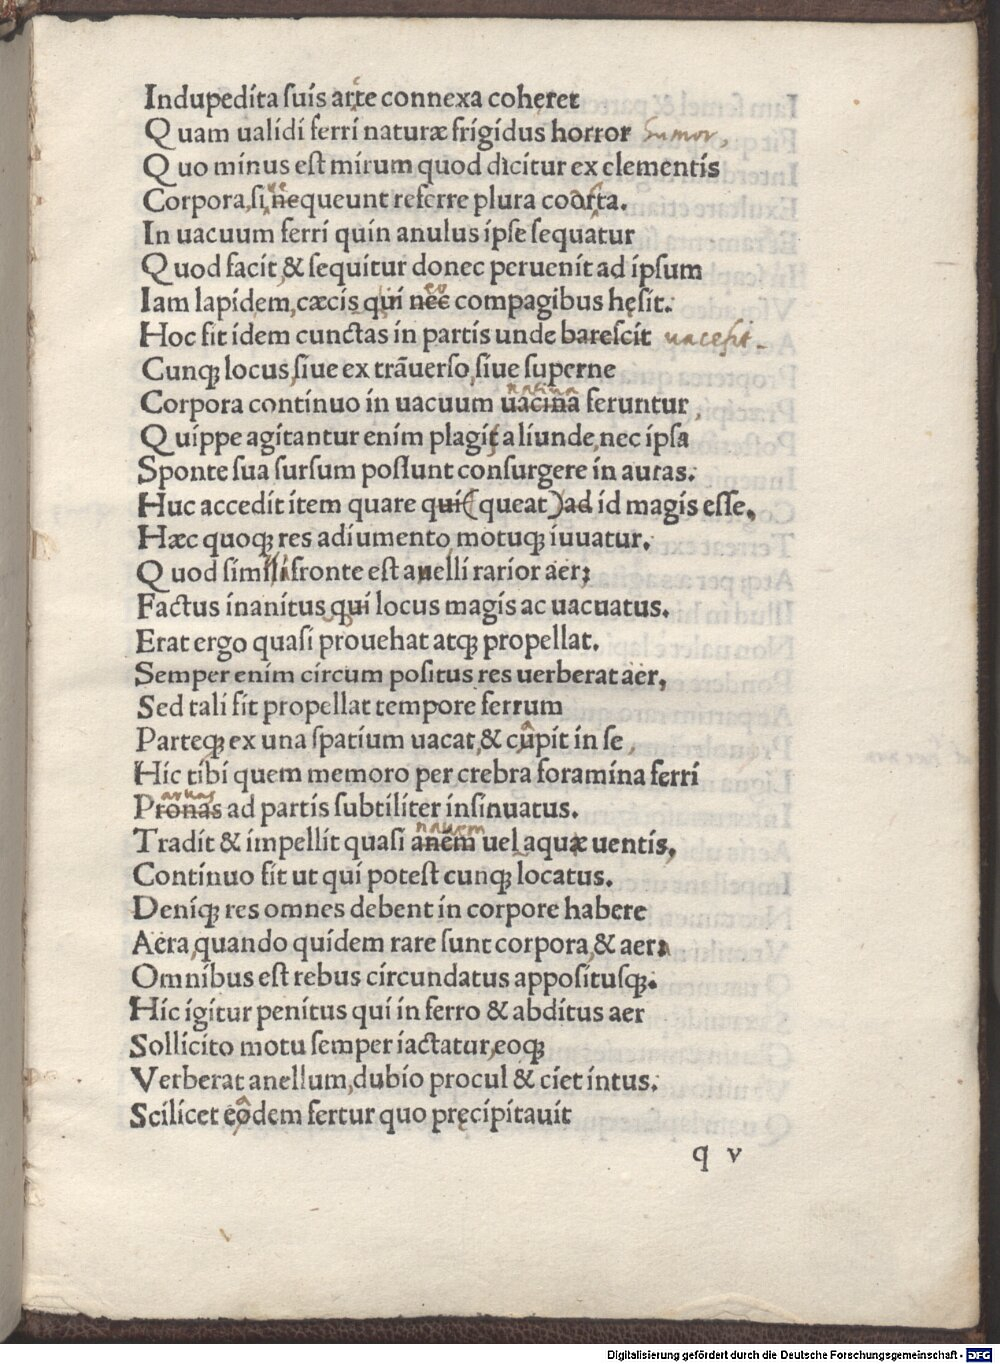 Indupedita suis arte connexa coheret
Quam ualidi ferri naturæ frigidus horror humor,
Quo minus est mirum quod dicitur ex elementis
Corpora, si nequeunt referre plura coorta.
In uacuum ferri quin anulus ipse sequatur
Quod facit, & sequitur donec peruenit ad ipsum
Iam lapidem, cæcis qui nec compagibus hęsit.
Hoc fit idem cunctas in partis unde barescit uacefit.
Cunqꝫ locus, siue ex trāuerso, siue superne
natiua
Corpora continuo in uacuum uacina feruntur,
Quippe agitantur enim plagis aliunde, nec ipsa
Sponte sua sursum possunt consurgere in auras.
Huc accedit item quare qui (queat) ad id magis esse,
Hæc quoqꝫ res adiumento, motuqꝫ iuuatur.
Quod simili fronte est anelli rarior aer;
Factus inanitus qui locus magis ac uacuatus.
Erat ergo quasi prouehat atqꝫ propellat.
Semper enim circum positus res uerberat aer,
Sed tali fit propellat tempore ferrum
Parteqꝫ ex una spatium uacat, & cupit in se,
Hic tibi quem memoro per crebra foramina ferri
paruas
Pronas ad partis subtiliter insinuatus.
nauem
Tradit & impellit quasi anem uel aquæ uentis,
Continuo fit ut qui potest cunqꝫ locatus.
Deniqꝫ res omnes debent in corpore habere
Aera, quando quidem rare sunt corpora, & aer;
Omnibus est rebus circundatus appositusqꝫ.
Hic igitur penitus qui in ferro & abditus aer
Sollicito motu semper iactatur, eoqꝫ
Verberat anellum, dubio procul & ciet intus.
Scilicet eodem fertur quo pręcipitauit
q v
Digitalisierung gefördert durch die Deutsche Forschungsgemeinschaft - DFG